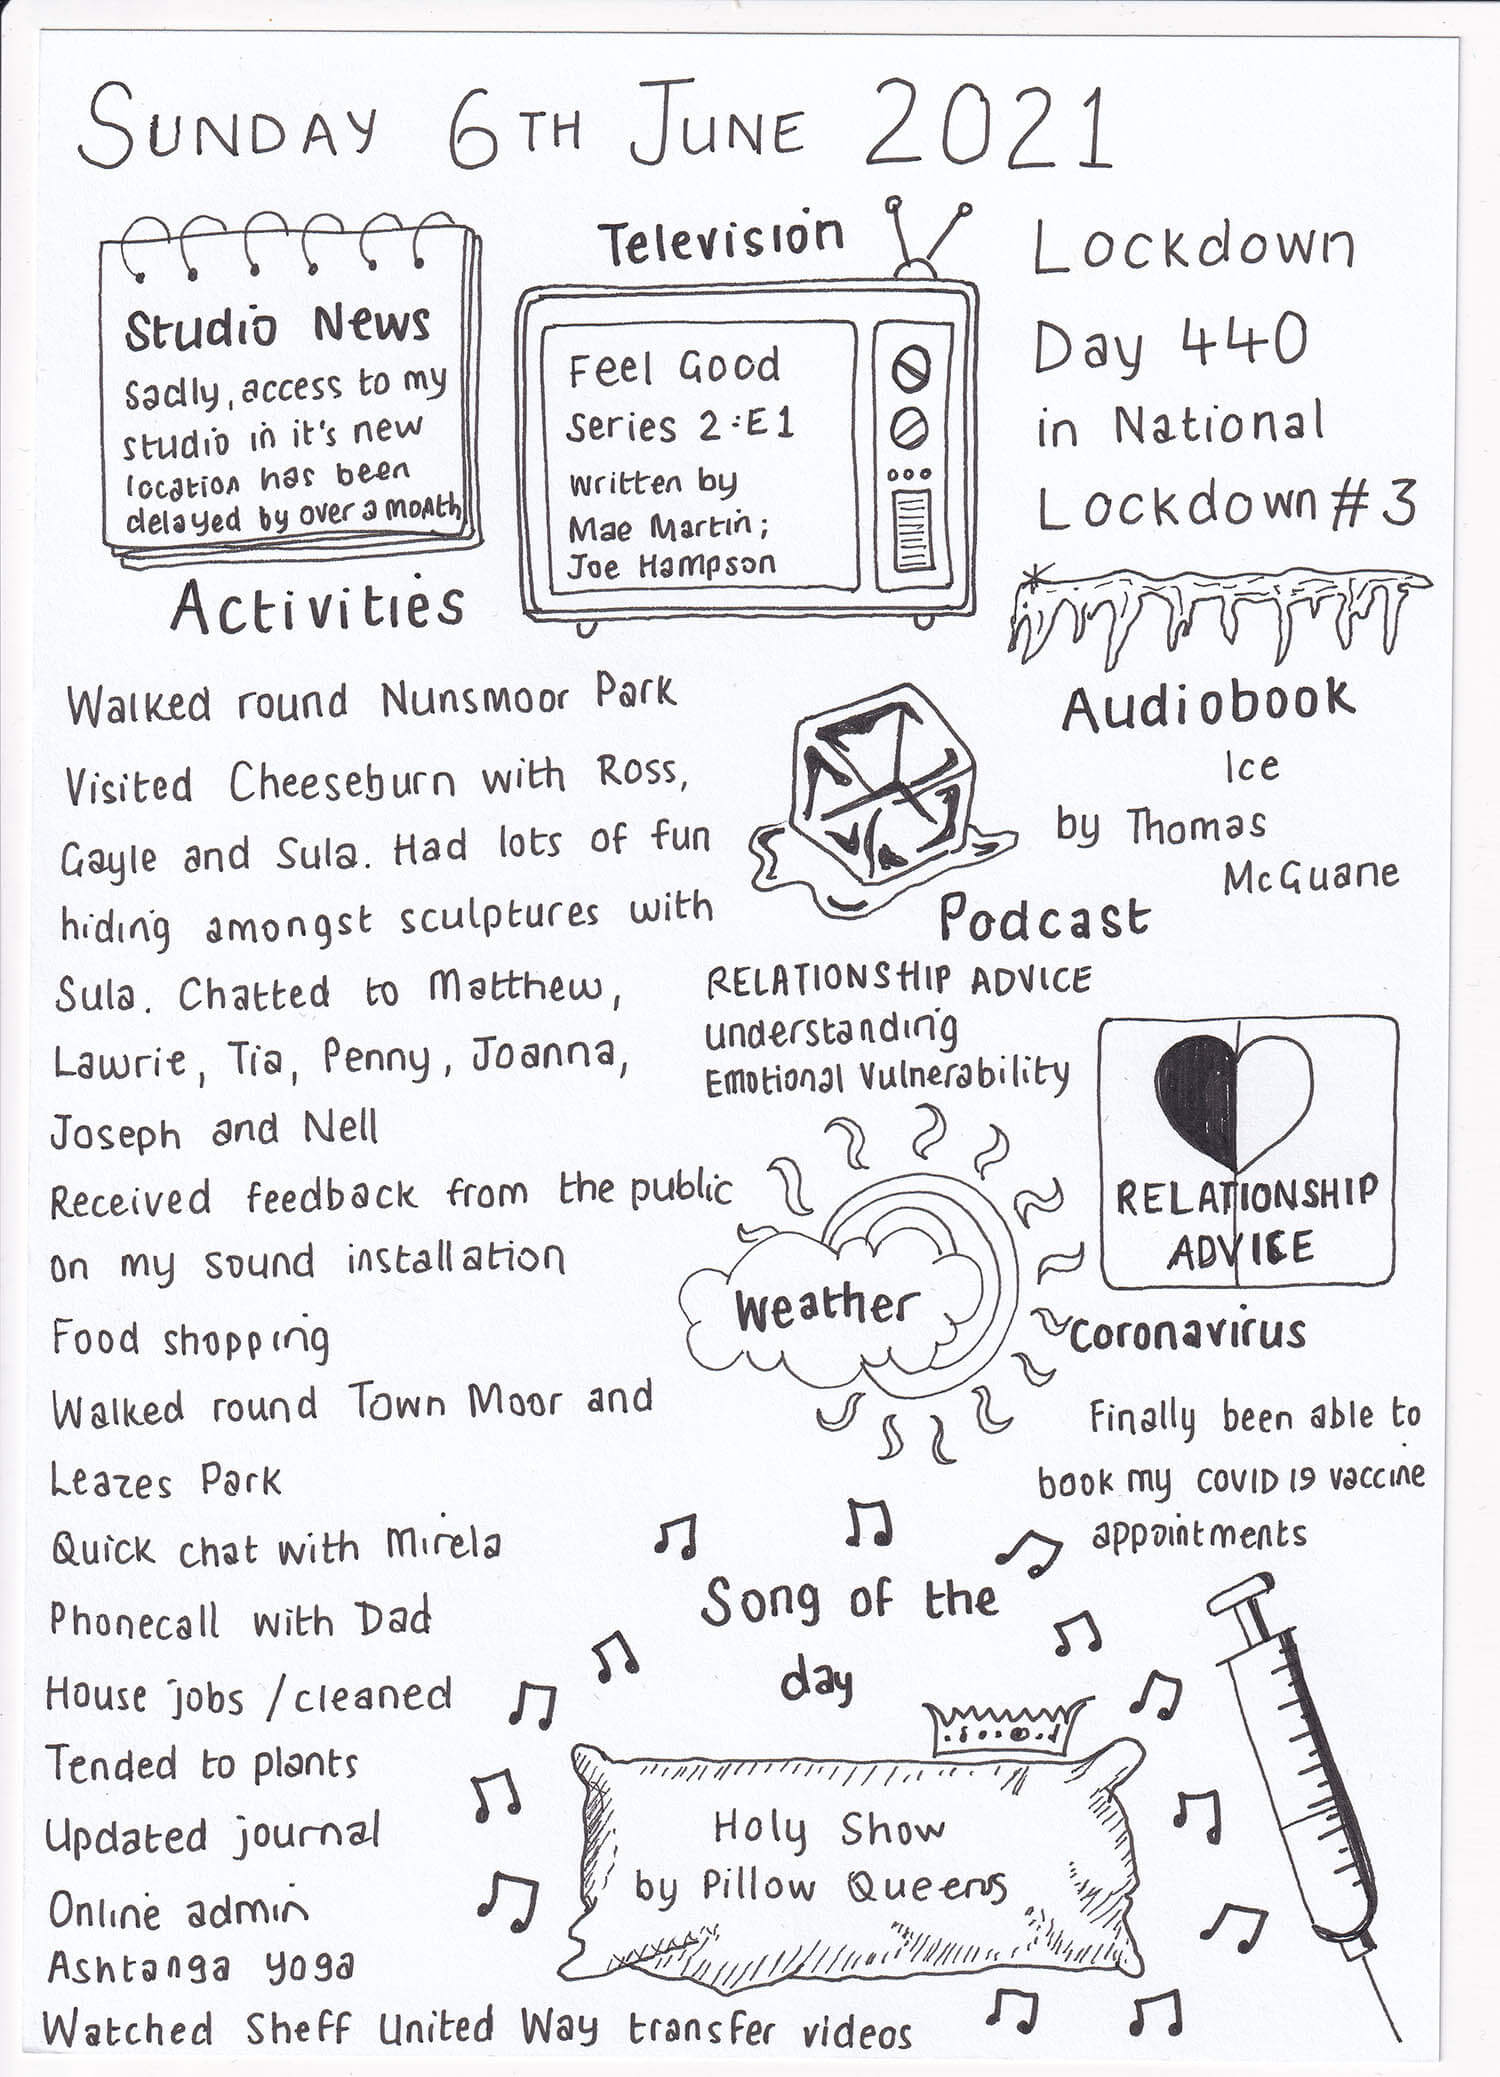 SUNDAY 6TH JUNE 2021
Studio News
sadly, access to my
studio in it's new
location has been
delayed by over a month
Television
Feel Good
Series 2:E1
written by
Mae Martin;
Joe Hampson
Lockdown
Day 440
in National
Lockdown #3
Activities
Walked round Nunsmoor Park
Visited Cheeseburn with Ross,
Gayle and Sula. Had lots of fun
hiding amongst sculptures with
Sula. Chatted to Matthew,
Lawrie, Tia, Penny, Joanna,
Joseph and Nell
Received feedback from the public
on my sound installation
Food shopping
Walked round Town Moor and
Leazes Park
Quick chat with Mirela
Phonecall with Dad
House jobs / cleaned
Tended to plants
Updated journal
Online admin
Ashtanga yoga
Watched Sheff United Way transfer videos
Audiobook
Ice
by Thomas
McGuane
Podcast
RELATIONSHIP ADVICE
understanding
Emotional Vulnerability
RELATIONSHIP
ADVICE
Weather
Coronavirus
Finally been able to
book my COVID 19 vaccine
appointments
Song of the
day
Holy Show
by Pillow Queens